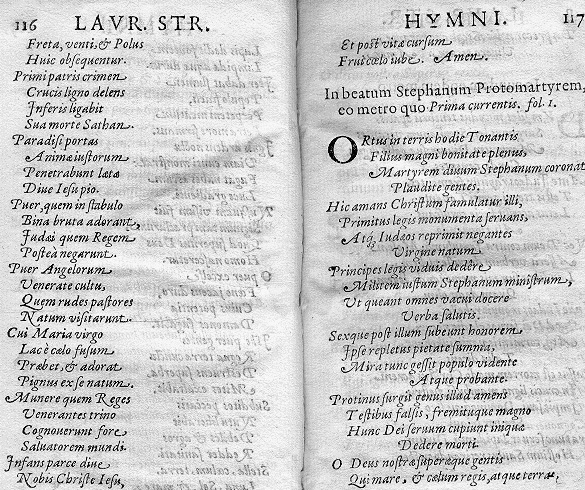 116 LAVR. STR.
Freta, venti, & Polus
Huic obsequentur.
Primi patris crimen
Crucis ligno delens
Inferis ligabit
Sua morte Sathan.
Paradisi portas
Animæ iustorum
Penetrabunt lætæ
Diue Iesu pio.
Puer, quem in stabulo
Bina bruta adorant,
Iudæi quem Regem
Postea negarunt.
Puer Angelorum
Venerate cultu,
Quem rudes pastores
Natum visitarunt.
Cui Maria virgo
Lac è cœlo fusum
Præbet, & adorat
Pignus ex se natum.
Munere quem Reges
Venerantes trino
Cognouerunt fore
Saluatorem mundi.
Infans parce diue
Nobis Christe Iesu,
HYMNI. 117
Et post vitæ cursum
Frui cœlo iube. Amen.
In beatum Stephanum Protomartyrem,
eo metro quo Prima currentis. fol. 1.
ORtus in terris hodie Tonantis
Filius magni bonitate plenus,
Martyrem diuum Stephanum coronat
Plaudite gentes.
Hic amans Christum famulatur illi,
Primitus legis monumenta seruans,
Atq; Iudæos reprimit negantes
Virgine natum.
Principes legis viduis dedêre
Militem iustum Stephanum ministrum,
Vt queant omnes vacui docere
Verba salutis.
Sexque post illum subeunt honorem
Ipse repletus pietate summa,
Mira tunc gessit populo vidente
Atque probante.
Protinus surgit genus illud amens
Testibus falsis, fremituque magno
Hunc Dei seruum cupiunt iniquæ
Dedere morti.
O Deus nostræ superæque gentis
Qui mare, & cœlum regis, atque terræ,